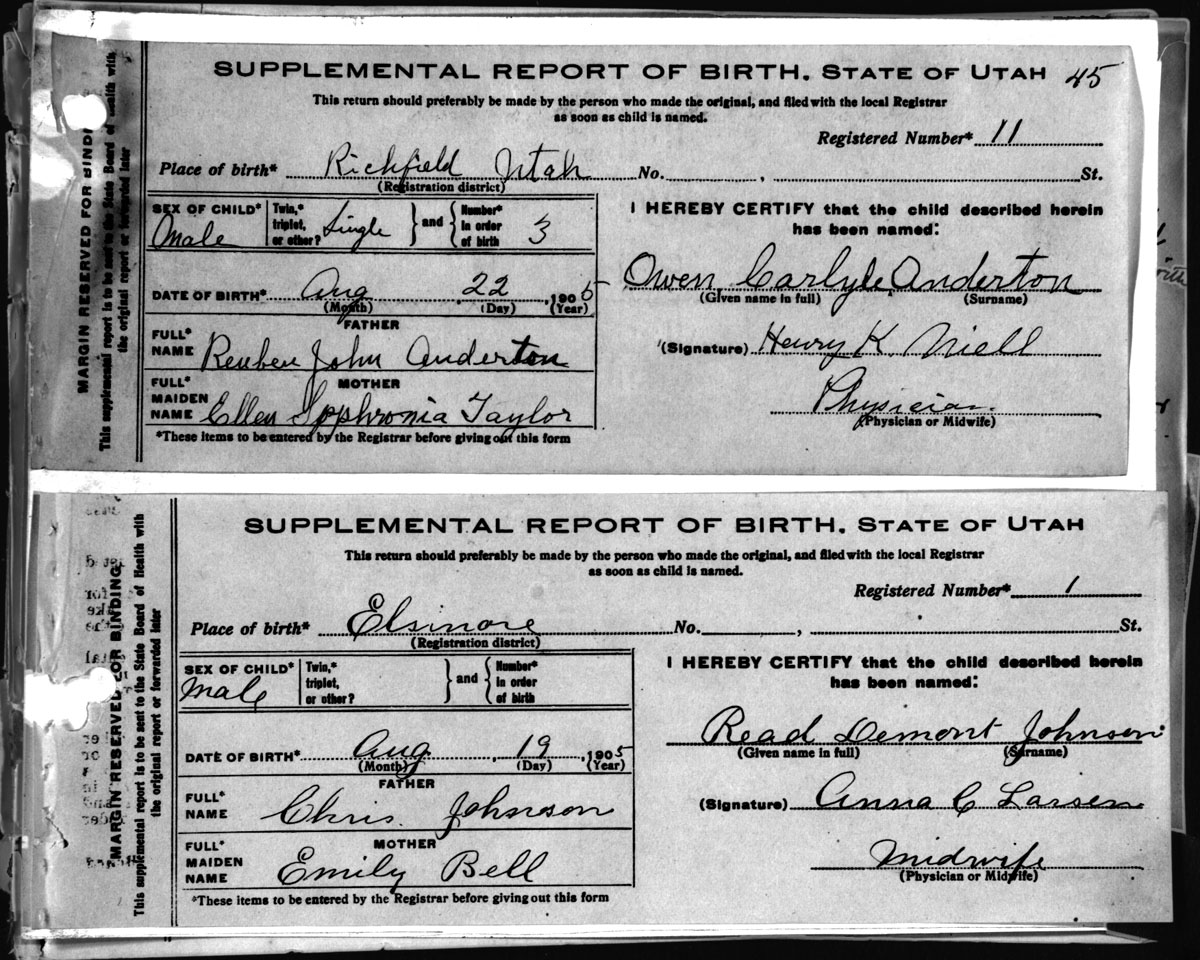 SUPPLEMENTAL REPORT OF BIRTH. STATE OF UTAH 45
This return should preferably be made by the person who made the original, and filed with the local Registrar
as soon as child is named.
Registered Number* 11
Place of birth* Richfield Utah No. , St.
(Registration district)
SEX OF CHILD* Male Twin,* triplet, or other? Single } and { Number* in order of birth 3
I HEREBY CERTIFY that the child described herein
has been named:
Owen Carlyle Anderton
(Given name in full) (Surname)
DATE OF BIRTH* Aug 22 , 1905
(Month) (Day) (Year)
FATHER
FULL* NAME Reuben John Anderton
(Signature) Henry K. Niell
MOTHER
FULL* MAIDEN NAME Ellen Sophronia Taylor
Physician
(Physician or Midwife)
*These items to be entered by the Registrar before giving out this form
MARGIN RESERVED FOR BINDING
This supplemental report is to be sent to the State Board of Health with
the original report or forwarded later
SUPPLEMENTAL REPORT OF BIRTH. STATE OF UTAH
This return should preferably be made by the person who made the original, and filed with the local Registrar
as soon as child is named.
Registered Number* 1
Place of birth* Elsinore No. , St.
(Registration district)
SEX OF CHILD* Male Twin,* triplet, or other? } and { Number* in order of birth
I HEREBY CERTIFY that the child described herein
has been named:
Read Demont Johnson
(Given name in full) (Surname)
DATE OF BIRTH* Aug , 19 , 1905
(Month) (Day) (Year)
FATHER
FULL* NAME Chris. Johnson
(Signature) Anna C Larsen
MOTHER
FULL* MAIDEN NAME Emily Bell
Midwife
(Physician or Midwife)
*These items to be entered by the Registrar before giving out this form
MARGIN RESERVED FOR BINDING
This supplemental report is to be sent to the State Board of Health with
the original report or forwarded later